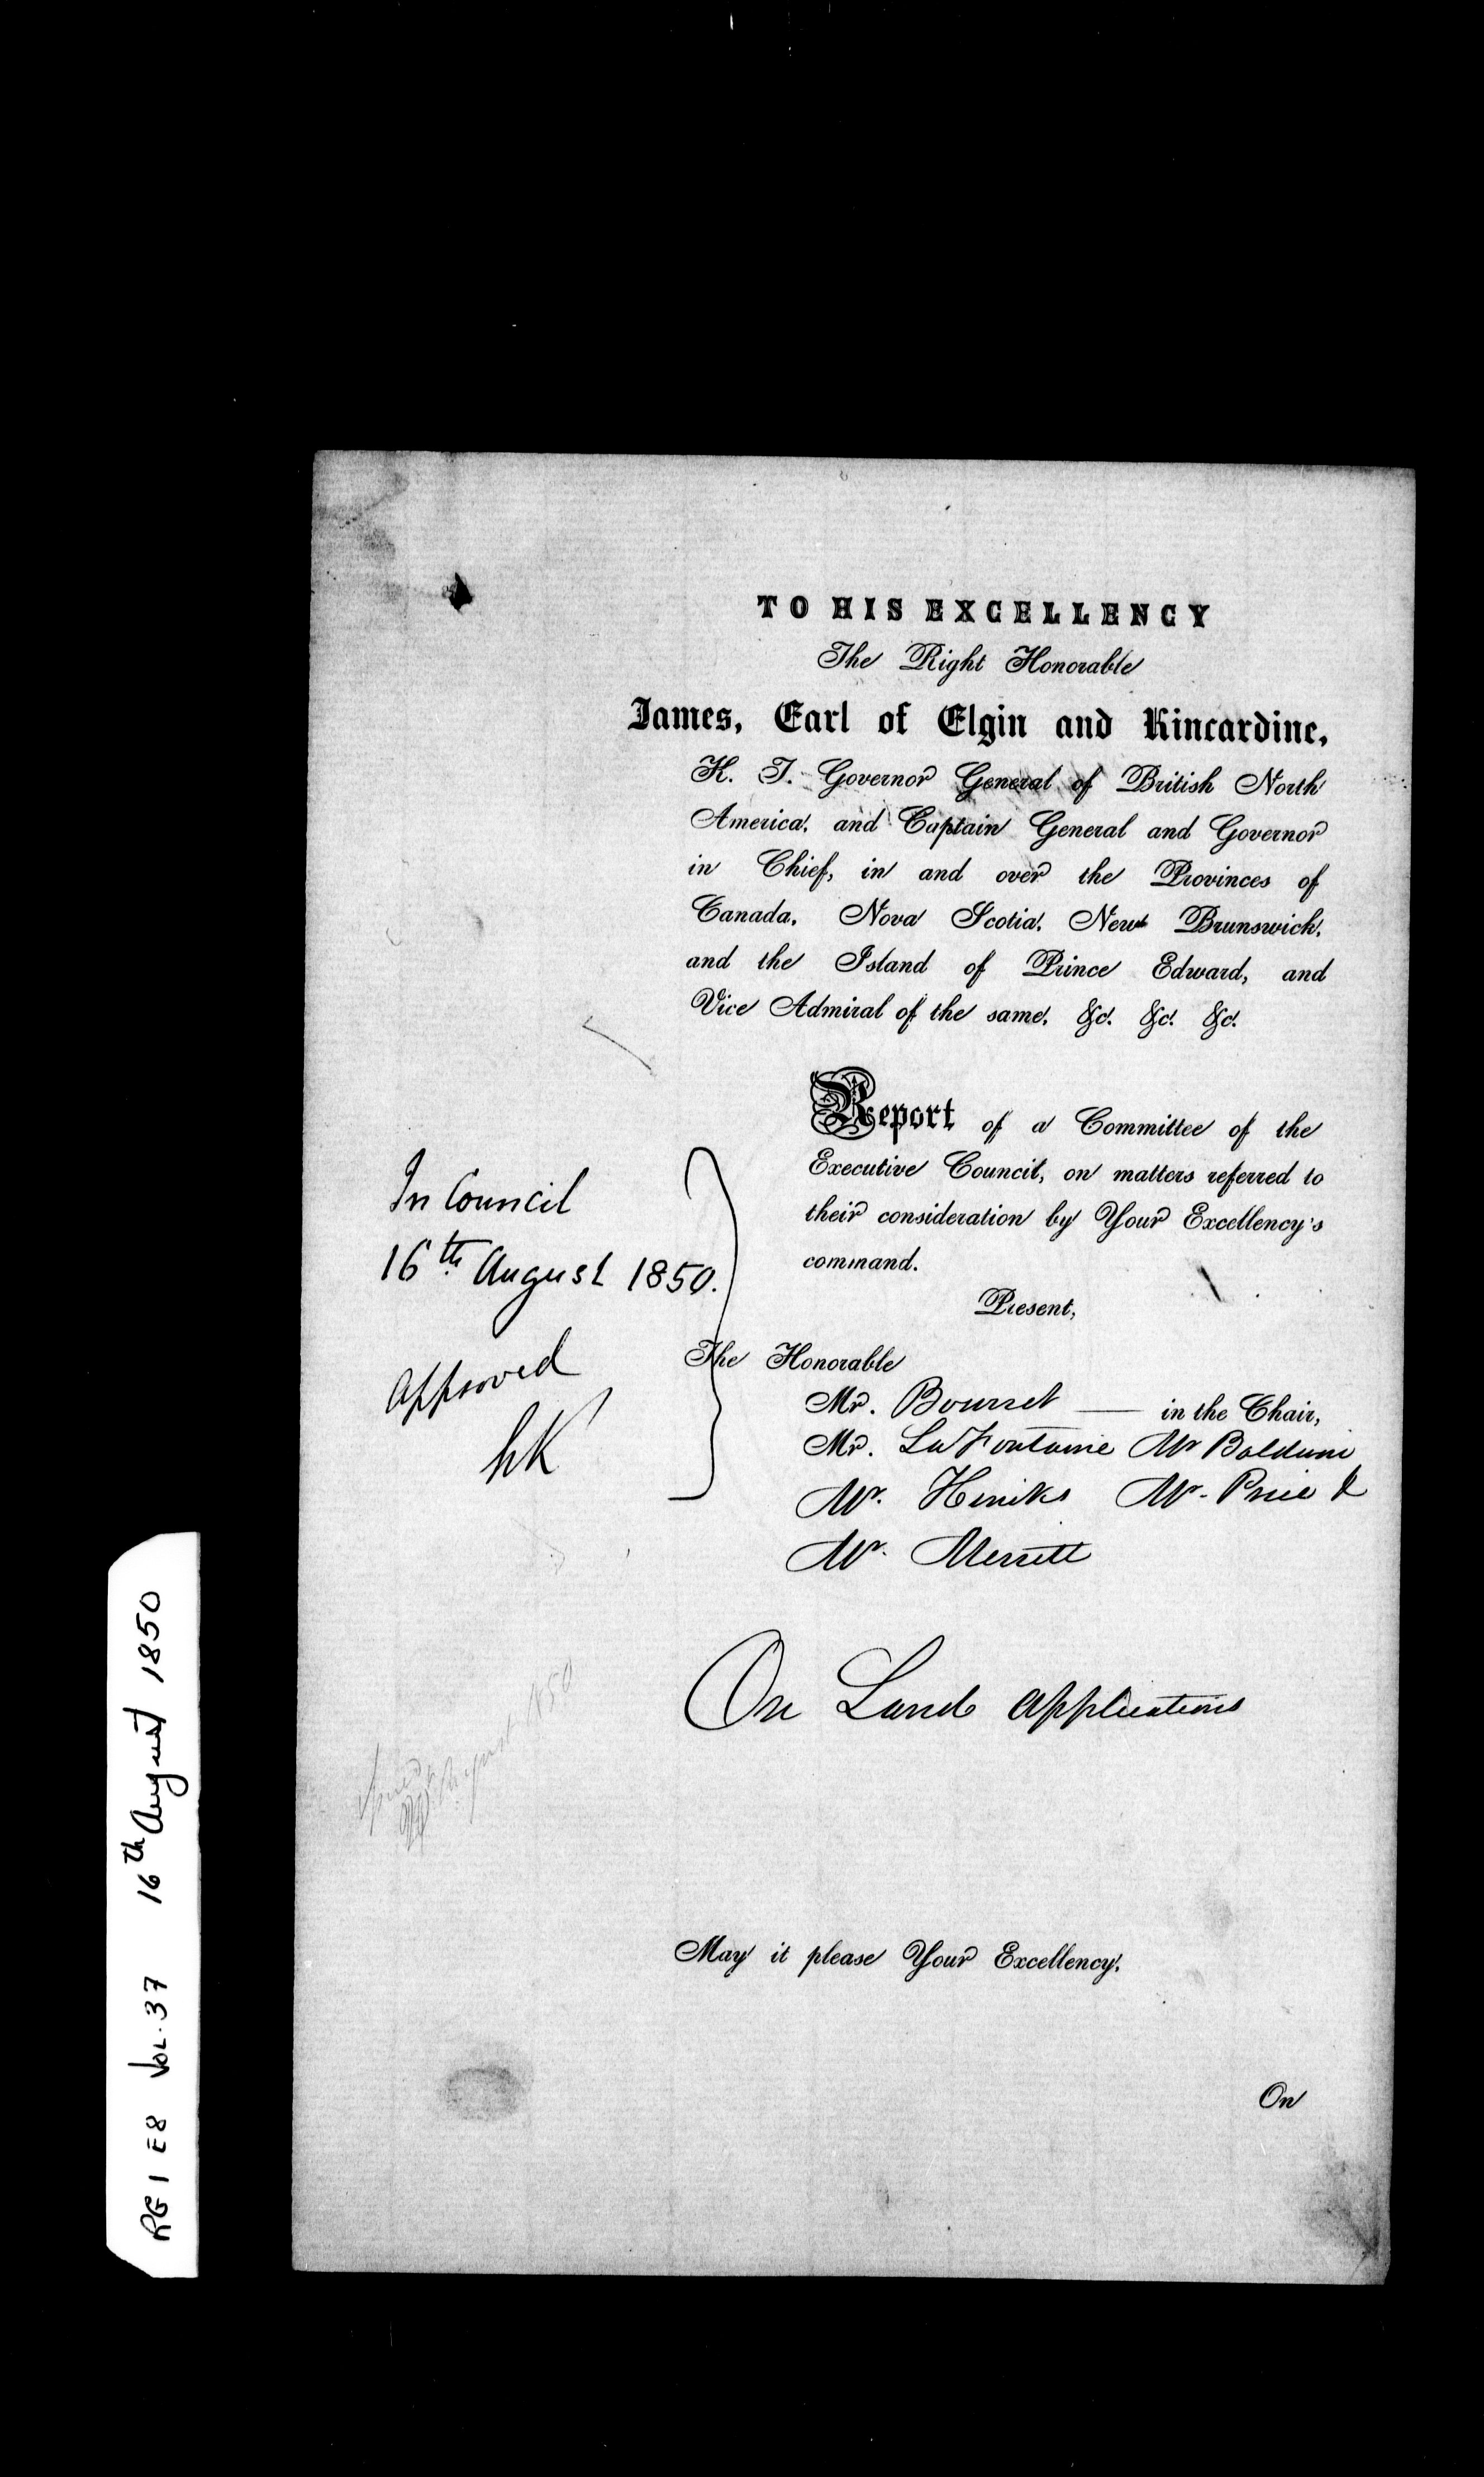 TO HIS EXCELLENCY
The Right Honorable
James, Earl of Elgin and Kincardine,
K. T. Governor General of British North
America, and Captain General and Governor
in Chief, in and over the Provinces of
Canada, Nova Scotia, New Brunswick,
and the Island of Prince Edward, and
Vice Admiral of the same, &c. &c. &c.
Report of a Committee of the
Executive Council, on matters referred to
their consideration by Your Excellency's
command.
In Council
16th August 1850.
Approved
Present,
The Honorable
Mr. Bourret — in the Chair,
Mr. LaFontaine Mr Baldwin
Mr. Hincks Mr. Price &
Mr. Merritt
On Land Applications
August 1850
May it please Your Excellency,
On
RG 1 E8 VOL. 37 16th August 1850